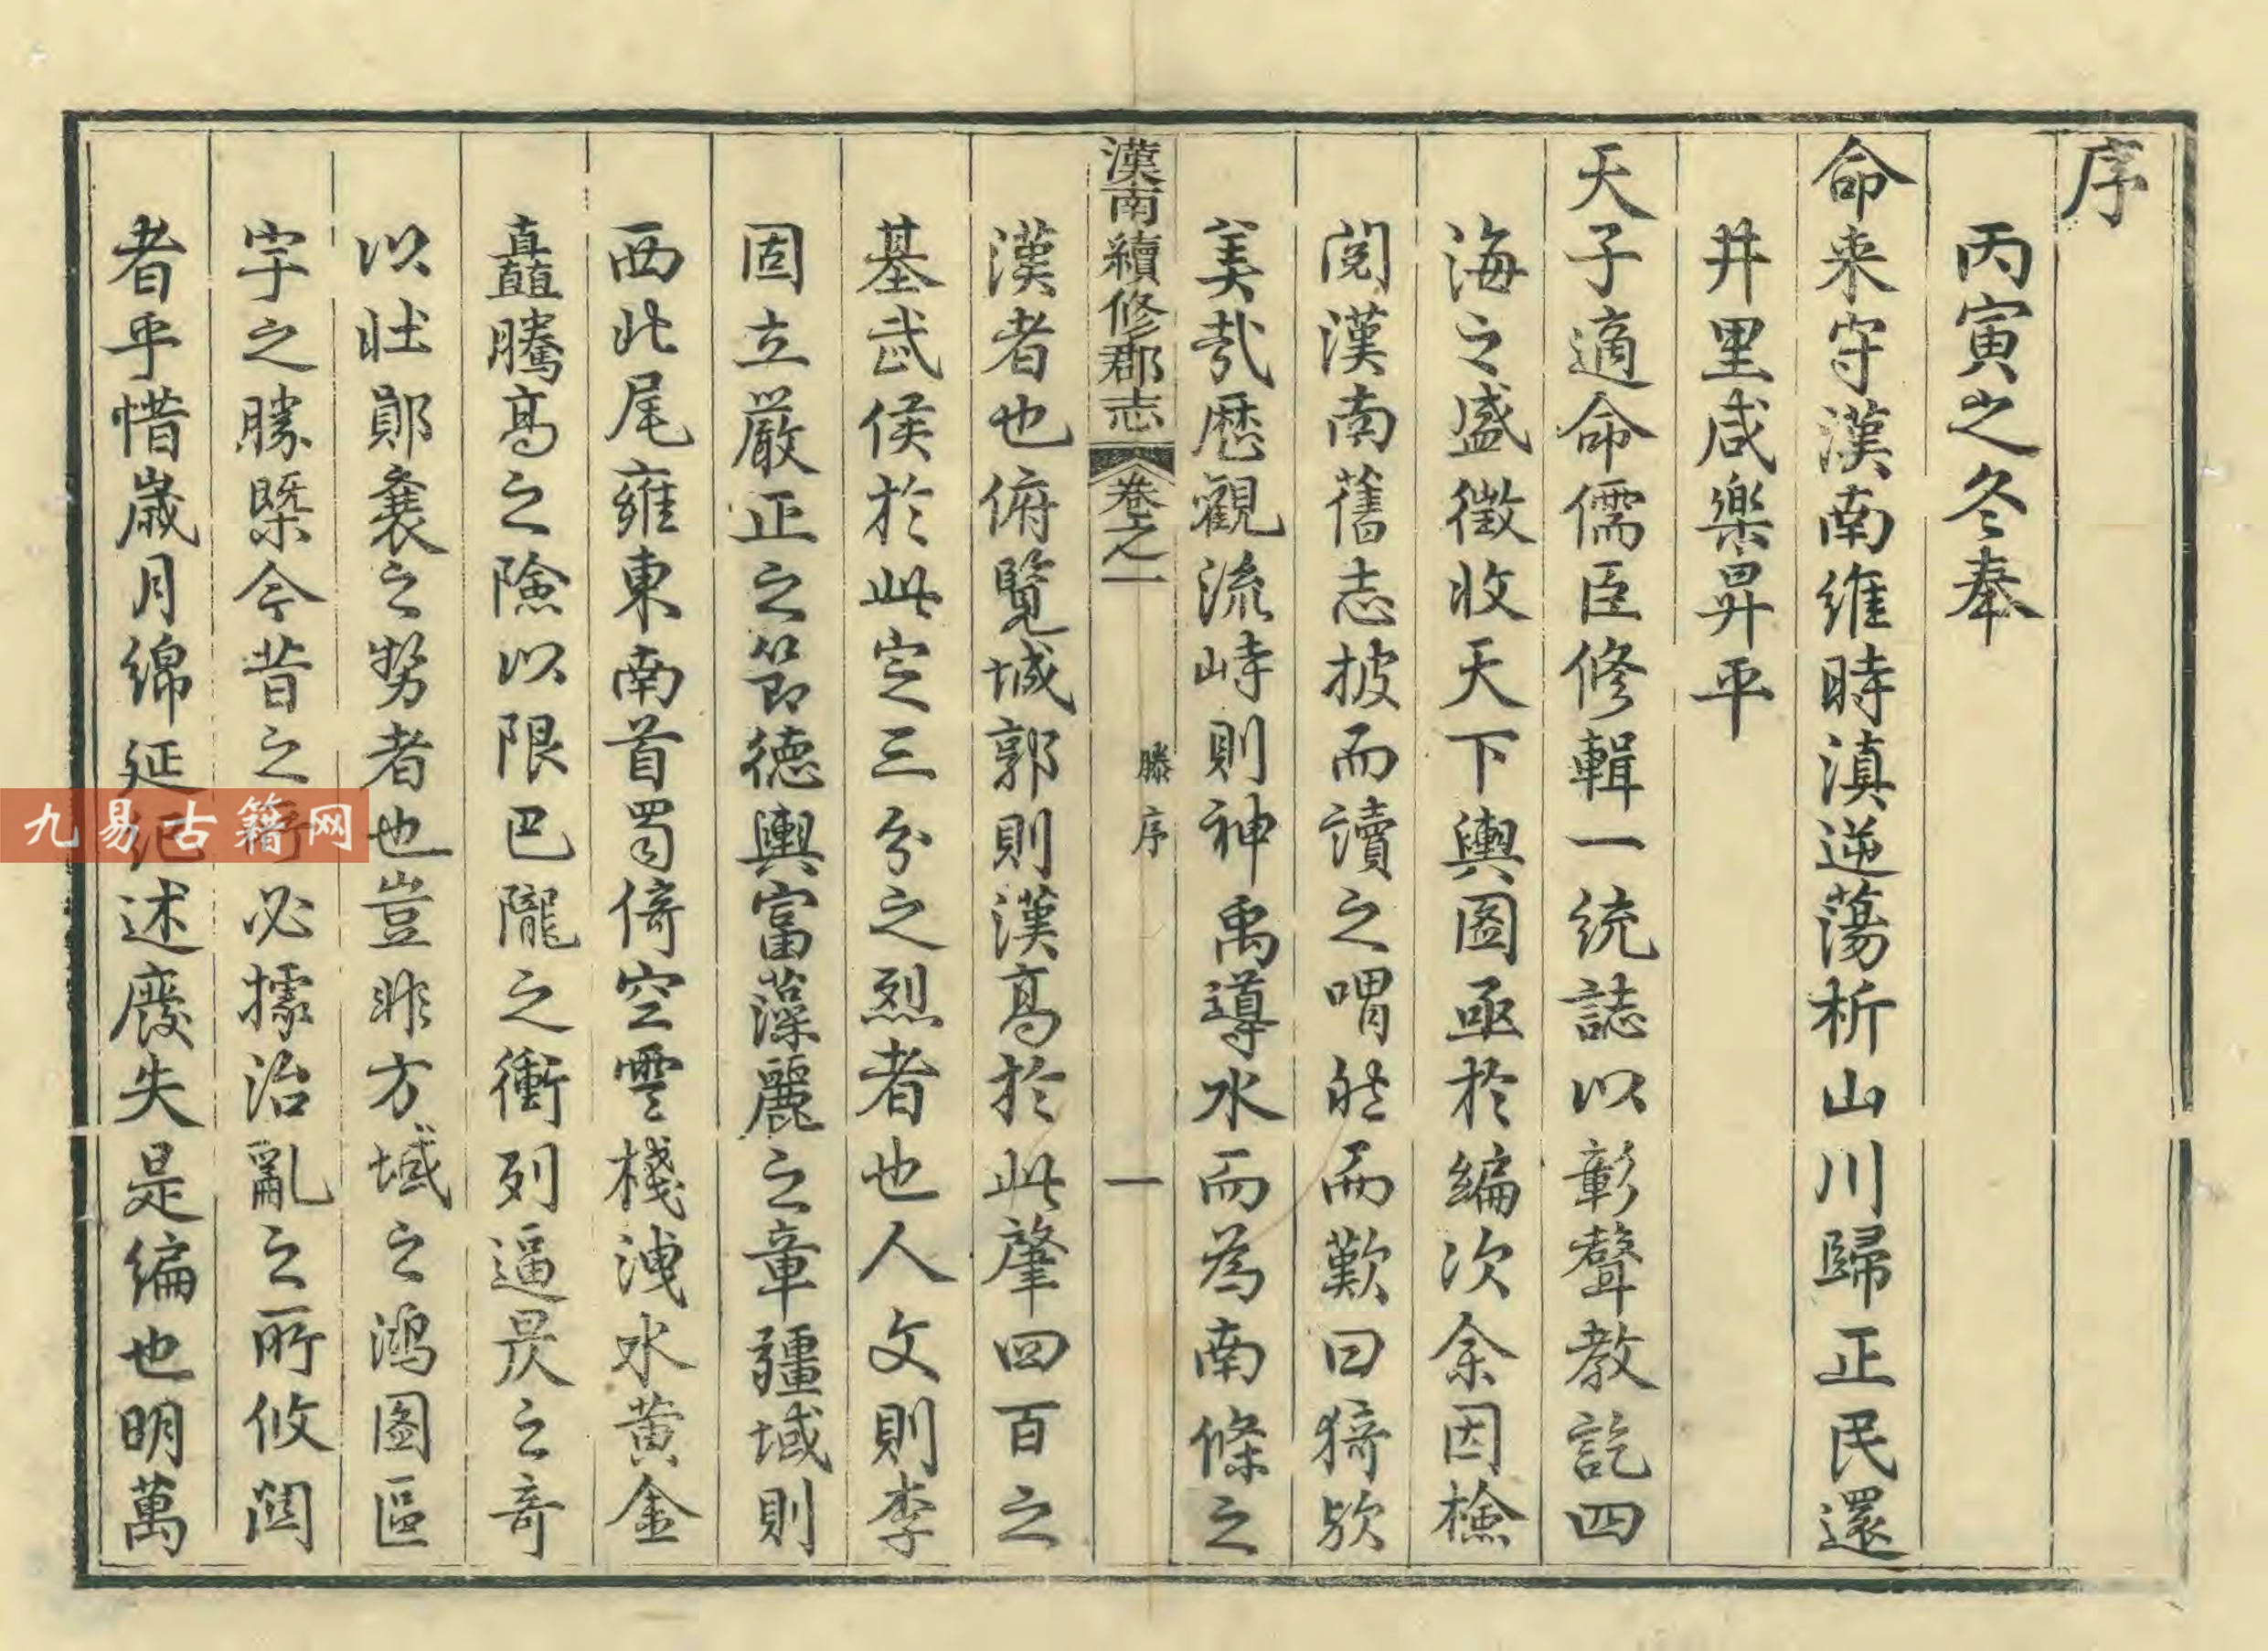 序
丙寅之冬奉
命来守漢南維時滇逆蕩析山川歸正民還
井里咸樂昇平
天子適命儒臣修輯一統誌以彰聲教訖四
海之盛徵收天下輿圖亟於編次余因檢
閱漢南舊志披而讀之喟然而歎曰猗歟
美哉歷觀流峙則神禹導水而為南條之
漢南續修郡志 卷之一 滕序 一
漢者也俯覽城郭則漢高於此肇四百之
基武侯於此定三分之烈者也人文則李
固立嚴正之節德輿富藻麗之章疆域則
西北尾雍東南首蜀倚空雲棧洩水黄金
矗騰高之險以限巴隴之衝列逼昃之奇
以壯鄖襄之勢者也豈非方域之鴻圖區
宇之勝槩今昔之必據治亂之所攸関
者乎惜歲月綿延紀述廢失是编也明萬
九易古籍网